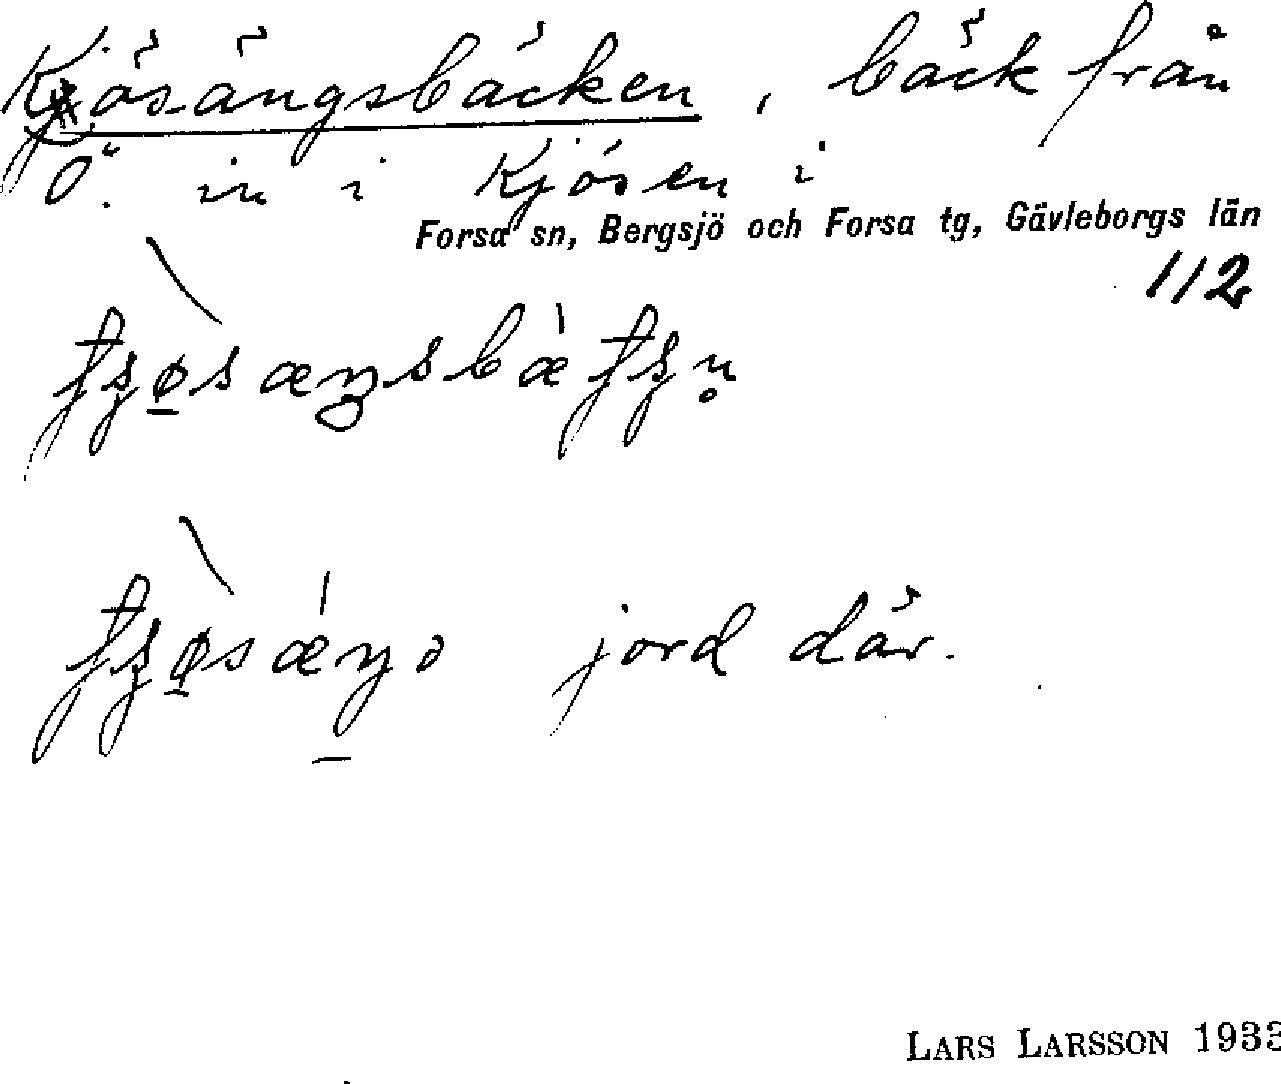 Kjösängsbäcken, bäck från
Ö. in i Kjösen i
Forsa sn, Bergsjö och Forsa tg, Gävleborgs län
112
jord där.
LARS LARSSON 1933